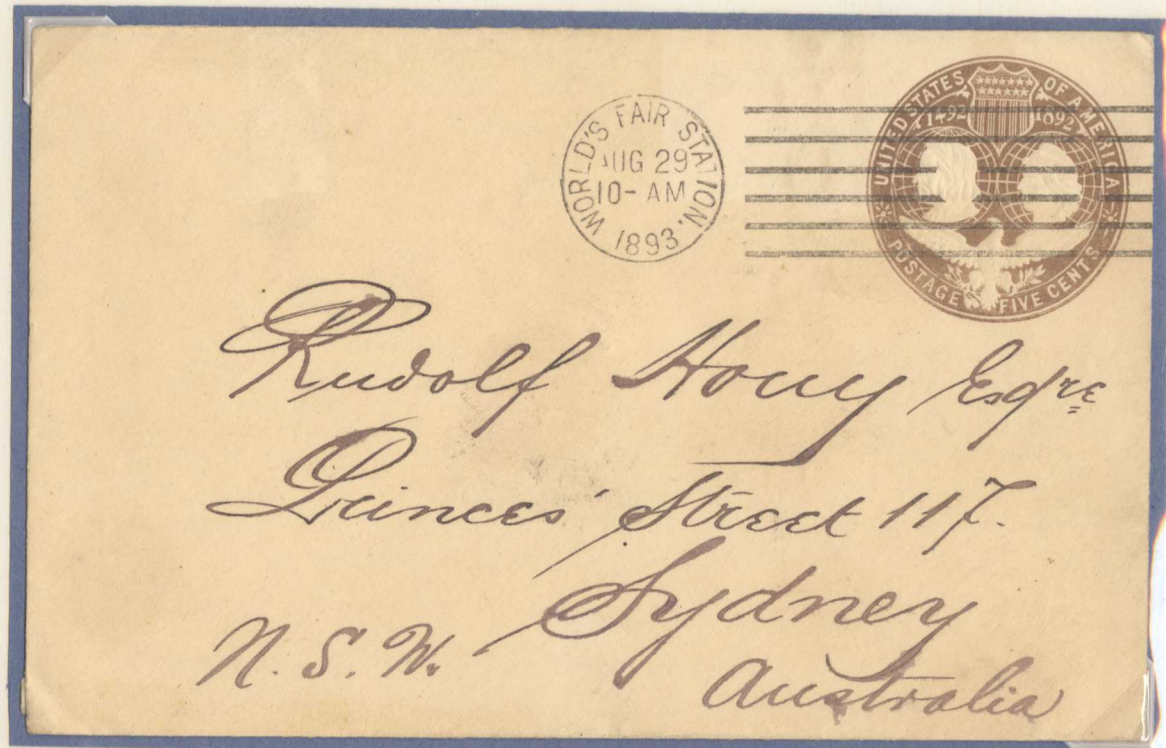 WORLD'S FAIR STATION.
AUG 29
10-AM
1893
UNITED STATES OF AMERICA
1492 1892
POSTAGE FIVE CENTS
Rudolf Houy Esqre
Princes' Street 117.
Sydney
N. S. W.
Australia